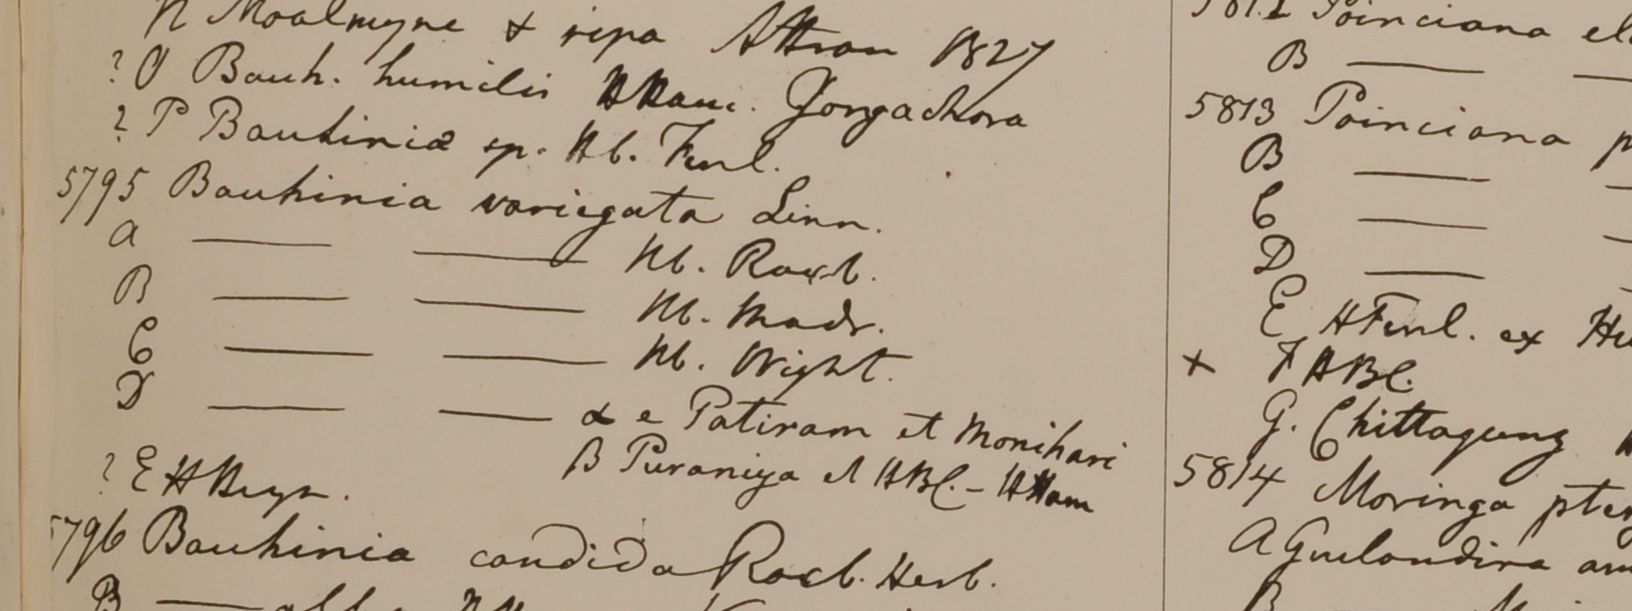 N Moalmyne & ripa Attran 1827
? O Bauh. humilis HHam. Gongachora
? P Bauhiniæ sp. Hb. Finl.
5795 Bauhinia variegata Linn.
a — — Hb. Roxb.
B — — Hb. Madr.
C — — Hb. Wight.
D — — α e Patiram et Monihari
β Puraniya et HBC. - HHam
? E HHeyn.
5796 Bauhinia candida Roxb. Herb.
B —
5812 Poinciana
B — —
5813 Poinciana
B — —
C — —
D — —
E HFinl. ex
+ F HBC.
G. Chittagung
5814 Moringa
A Guilandina
B